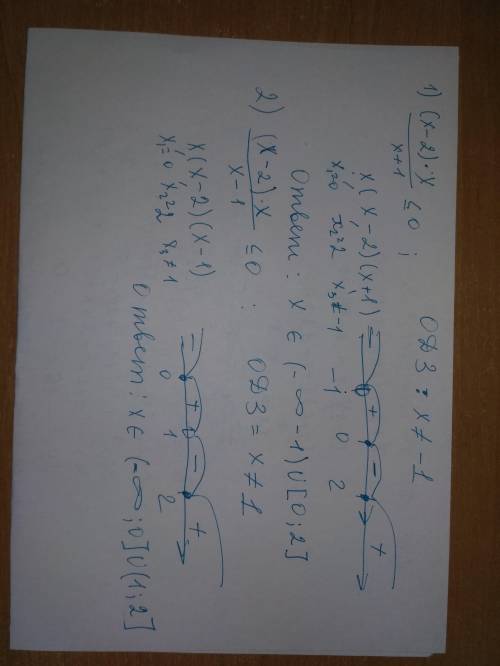 1) (x-2)·x / x+1 ≤ 0 ; ОДЗ: x ≠ -1
x(x-2)(x+1) =
x₁=0 x₂=2 x₃≠-1
- + - +
-1 0 2
Ответ: x ∈ (-∞ -1)∪[0;2]
2) (x-2)·x / x-1 ≤ 0 ; ОДЗ = x ≠ 1
x(x-2)(x-1)
x₁=0 x₂=2 x₃≠1
- + - +
0 1 2
Ответ: x ∈ (-∞;0]∪(1;2]